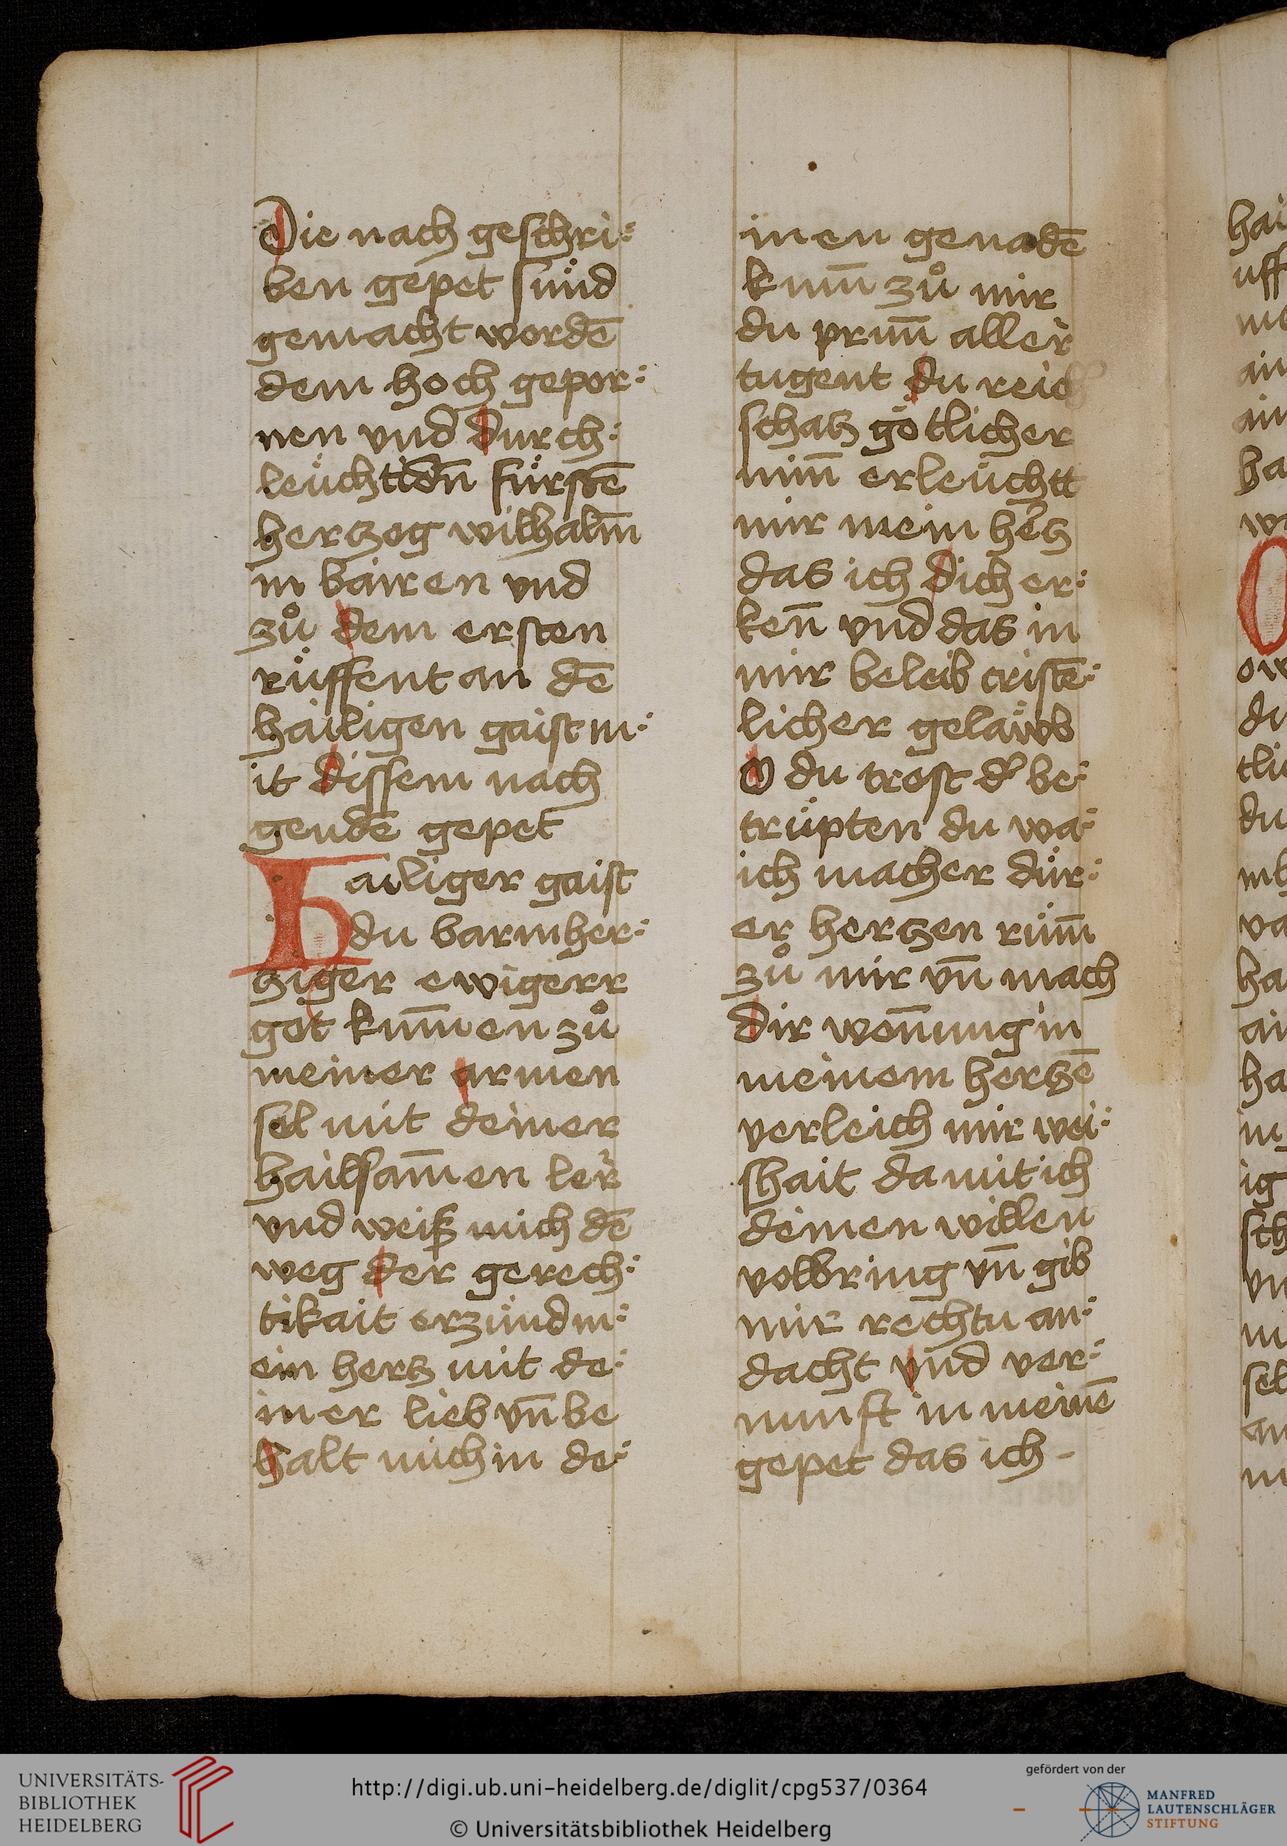 Die nach geschri:
ben gepet sind
gemacht wordē
dem hoch gepor:
nen vnd durch:
leüchtiḡn fürstē
hertzog wilhalm̄
in bairen vnd
zů dem ersten
rüffent an dē
hailigen gaist m:
it dissem nach
gendē gepet
Hailiger gaist
du barmher:
tziger ewigerr
got kum̄en zů
meiner armen
sel mit deiner
hailsam̄en ler
vnd weiß mich dē
weg der gerech:
tikait erzünd m:
ein hertz mit de:
iner lieb vn̄ be
halt mich in de:
inen genadē
kum̄ zů mir
du prun̄ aller
tugent du reich
schatz götlicher
min̄ erleüchtt
mir mein hertz
das ich dich er:
ken̄ vnd das in
mir beleib cristē:
licher gelawb
O du trost der be:
trüpten du wa:
ich macher dür:
er hertzen rüm̄
zů mir vn̄ mach
dir won̄ung in
meinem hertzē
verleich mir wei:
shait da mit ich
deinen willen
volbring vn̄ gib
mir rechtu an:
dacht vnd ver:
nunft in meinē
gepet das ich -
UNIVERSITÄTS-
BIBLIOTHEK
HEIDELBERG
http://digi.ub.uni-heidelberg.de/diglit/cpg537/0364
© Universitätsbibliothek Heidelberg
gefördert von der
MANFRED
LAUTENSCHLÄGER
STIFTUNG